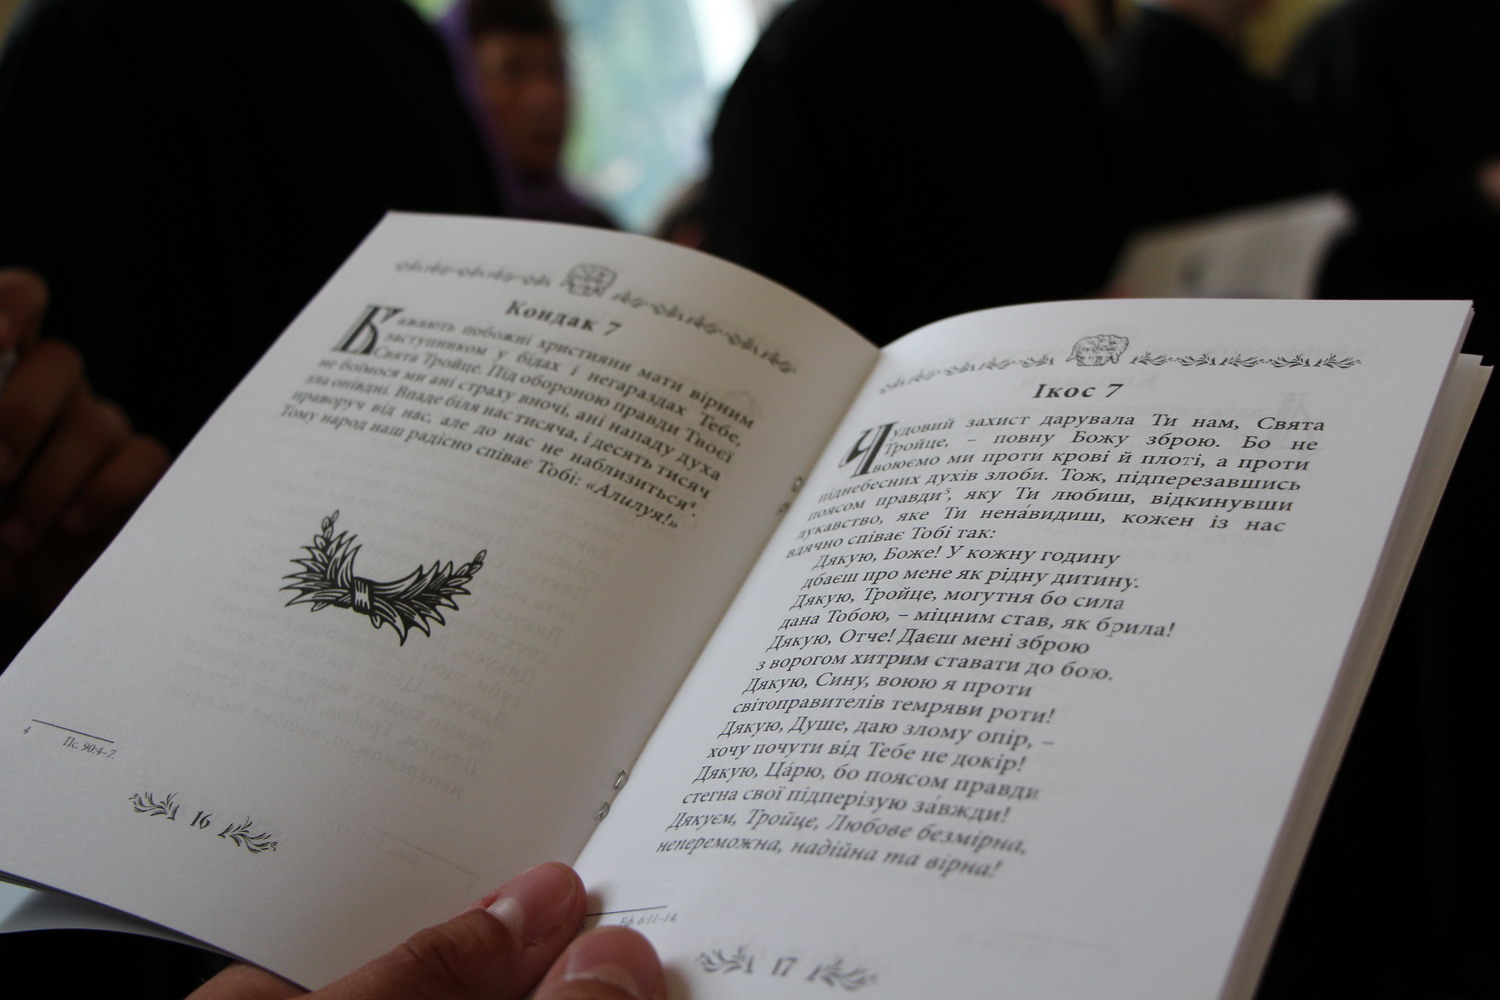 Кондак 7
Бажають побожні християни мати вірним
заступником у бідах і негараздах Тебе,
Свята Тройце. Під обороною правди Твоєї
не боїмося ми ані страху вночі, ані нападу духа
зла опівдні. Впаде біля нас тисяча, і десять тисяч
праворуч від нас, але до нас не наблизиться⁴.
Тому народ наш радісно співає Тобі: «Алилуя!»
4 Пс. 90:4–7.
16
Ікос 7
Чудовий захист дарувала Ти нам, Свята
Тройце, – повну Божу зброю. Бо не
воюємо ми проти крові й плоті, а проти
піднебесних духів злоби. Тож, підперезавшись
поясом правди⁵, яку Ти любиш, відкинувши
лукавство, яке Ти нена́видиш, кожен із нас
вдячно співає Тобі так:
Дякую, Боже! У кожну годину
дбаєш про мене як рідну дитину.
Дякую, Тройце, могутня бо сила
дана Тобою, – міцним став, як брила!
Дякую, Отче! Даєш мені зброю
з ворогом хитрим ставати до бою.
Дякую, Сину, воюю я проти
світоправителів темряви роти!
Дякую, Душе, даю злому опір, –
хочу почути від Тебе не докір!
Дякую, Ца́рю, бо поясом правди
стегна свої підперізую за́вжди!
Дякуєм, Тройце, Любове безмірна,
непереможна, надійна та вірна!
Еф. 6:11–14.
17